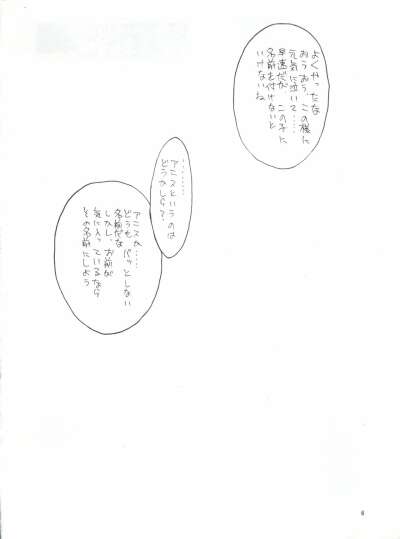 よくやったな
おうおう、この様に
元気に泣いて……
早速だが、この子に
名前を付けないと
いけないね
………
アニスというのは
どうかしら?
アニスか……
どうもパッとしない
名前だな
しかし、お前が
気に入っているなら
その名前にしよう
6